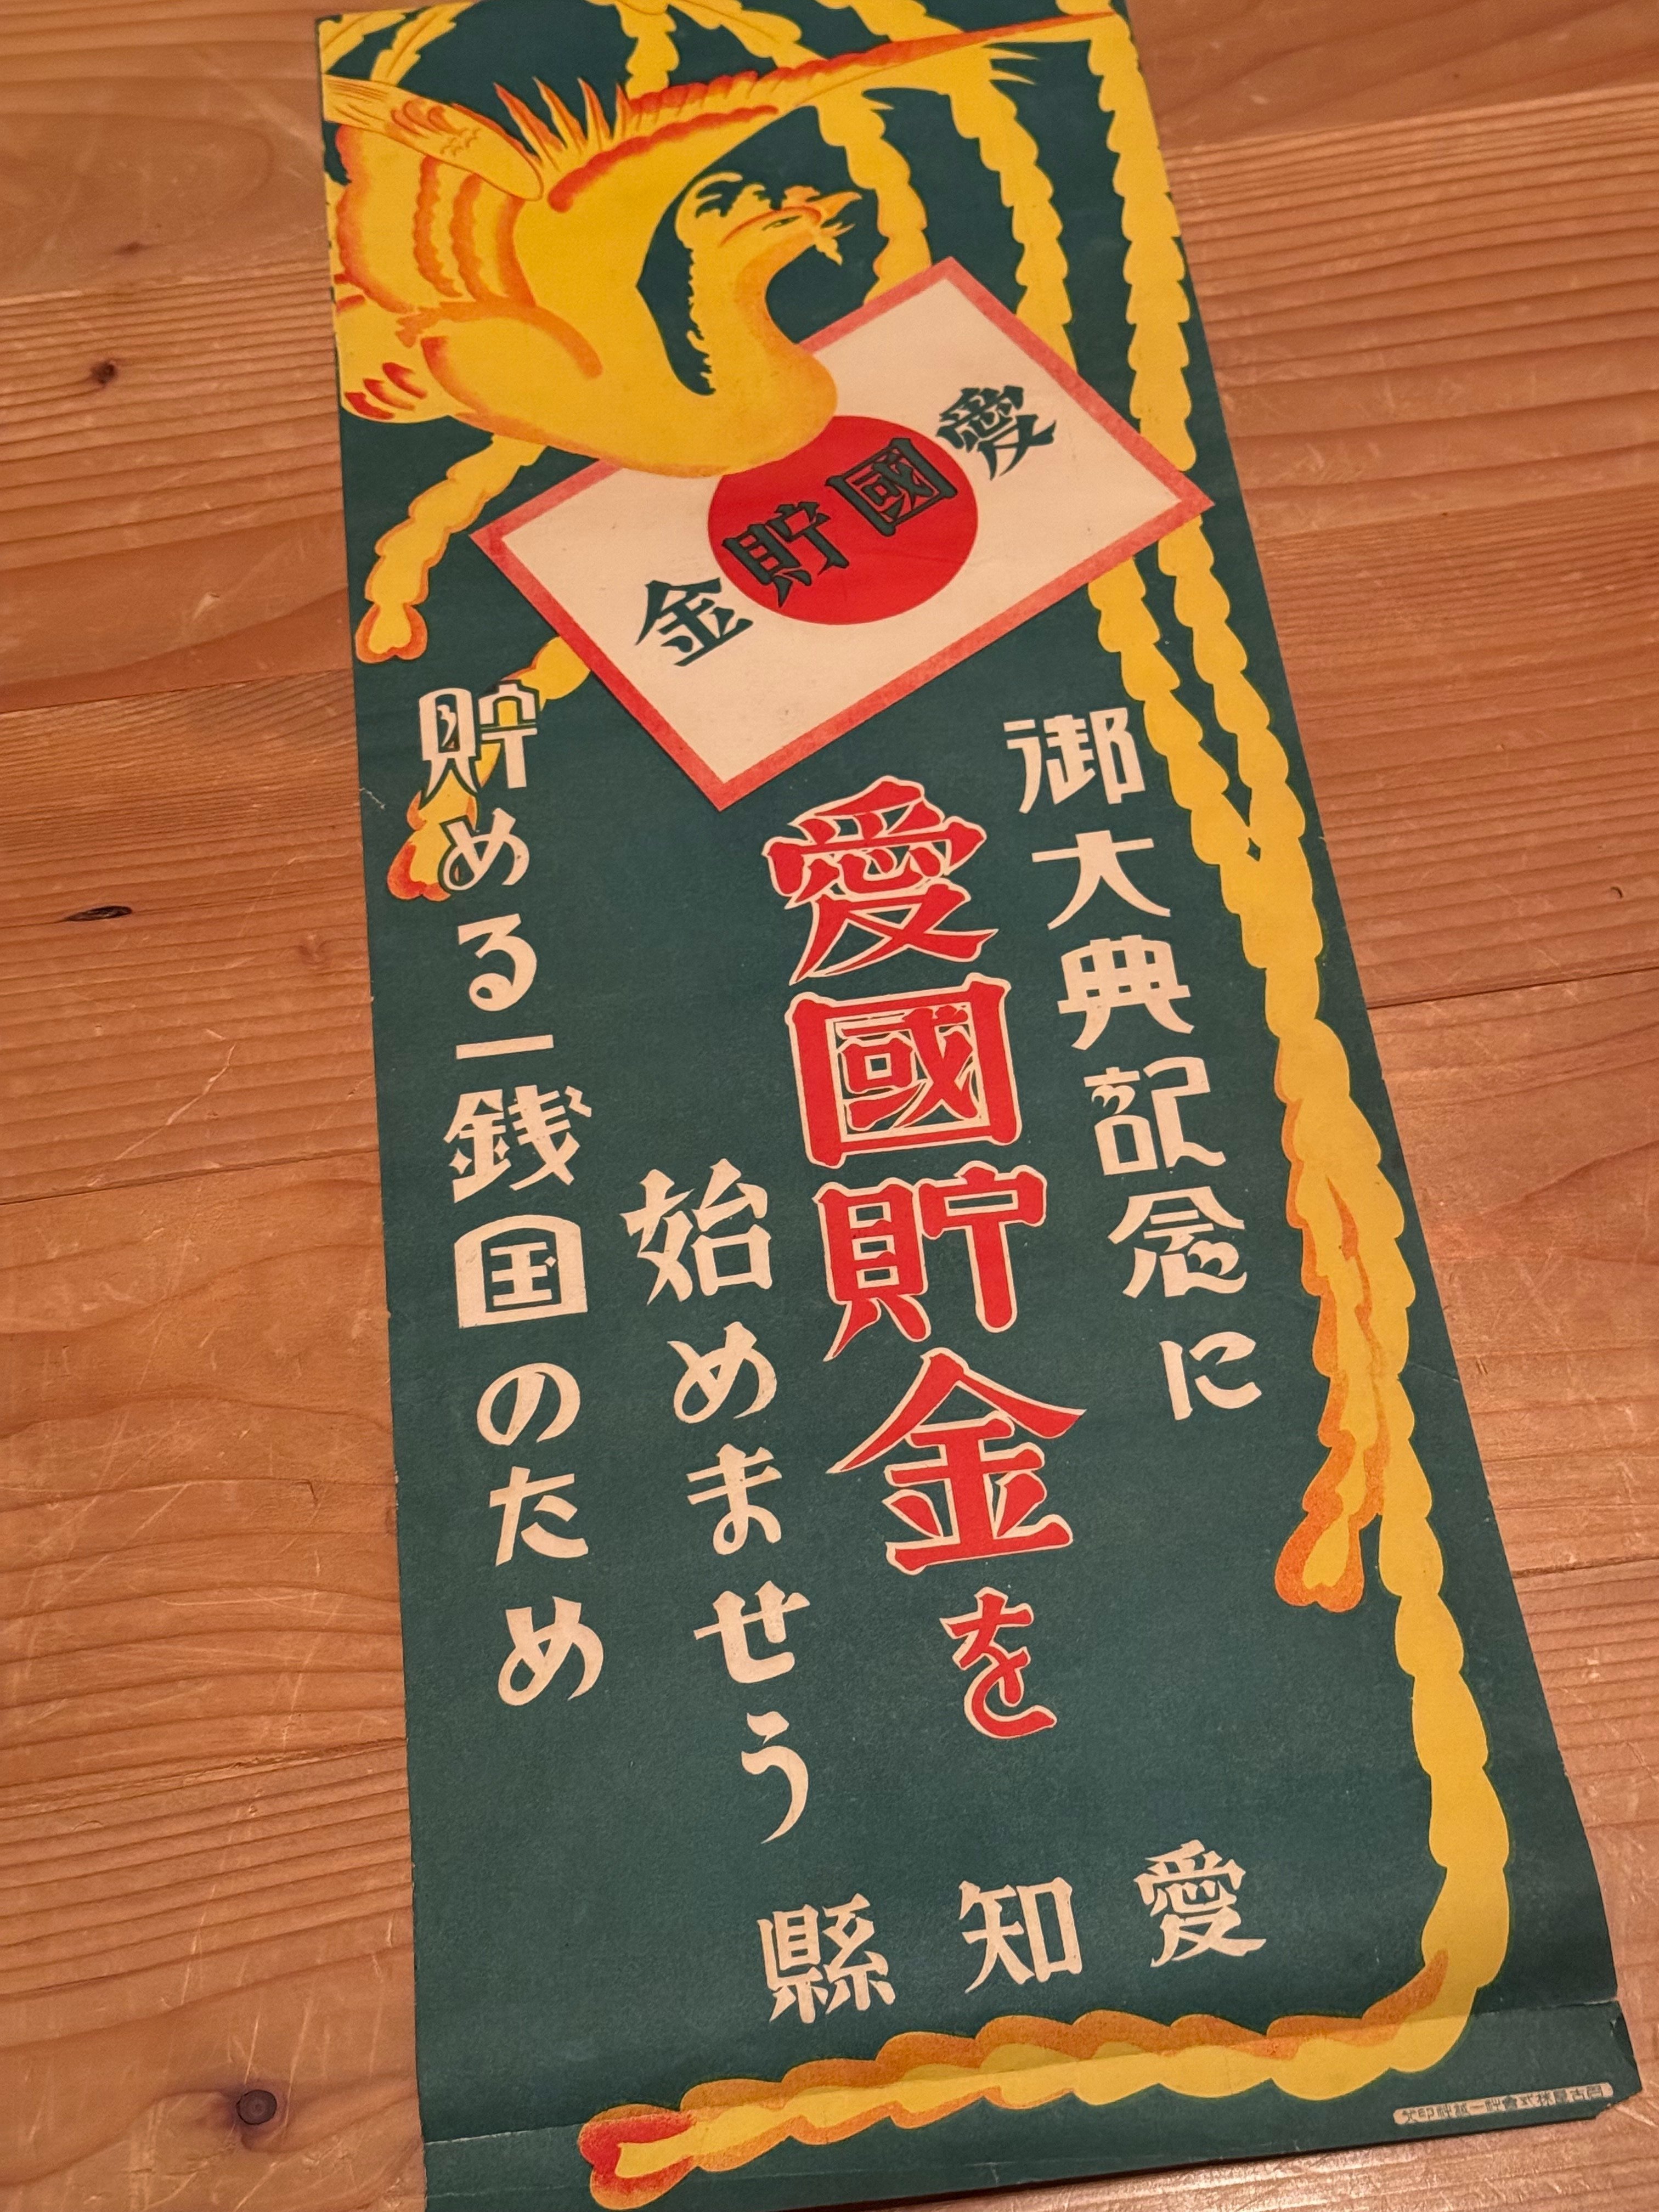 愛國貯金
御大典記念に
愛國貯金を
始めませう
貯める一銭国のため
愛知縣